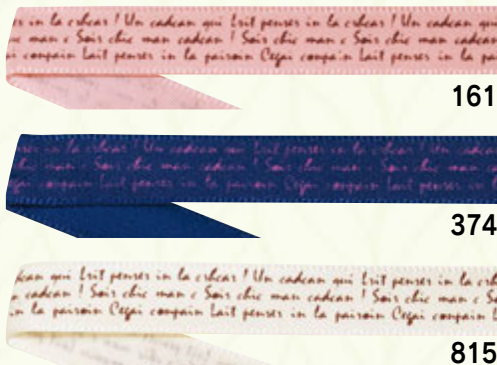 in la crhcar ! Un cadcan qui Lrit penser in la crhcar ! Un cadcan
man c Soir chic man cadcan ! Soir chic man c Soir chic man cadcan
conpain Lait penser in la pairoin Cegai conpain Lait penser in la
161
in la crhcar ! Un cadcan qui Lrit penser in la crhcar ! Un
man c Soir chic man cadcan ! Soir chic man c Soir chic man
conpain Lait penser in la pairoin Cegai conpain Lait penser in
374
qui Lrit penser in la crhcar ! Un cadcan qui Lrit penser in la
cadcan ! Soir chic man c Soir chic man cadcan ! Soir chic man c
in la pairoin Cegai conpain Lait penser in la pairoin Cegai conpain
815